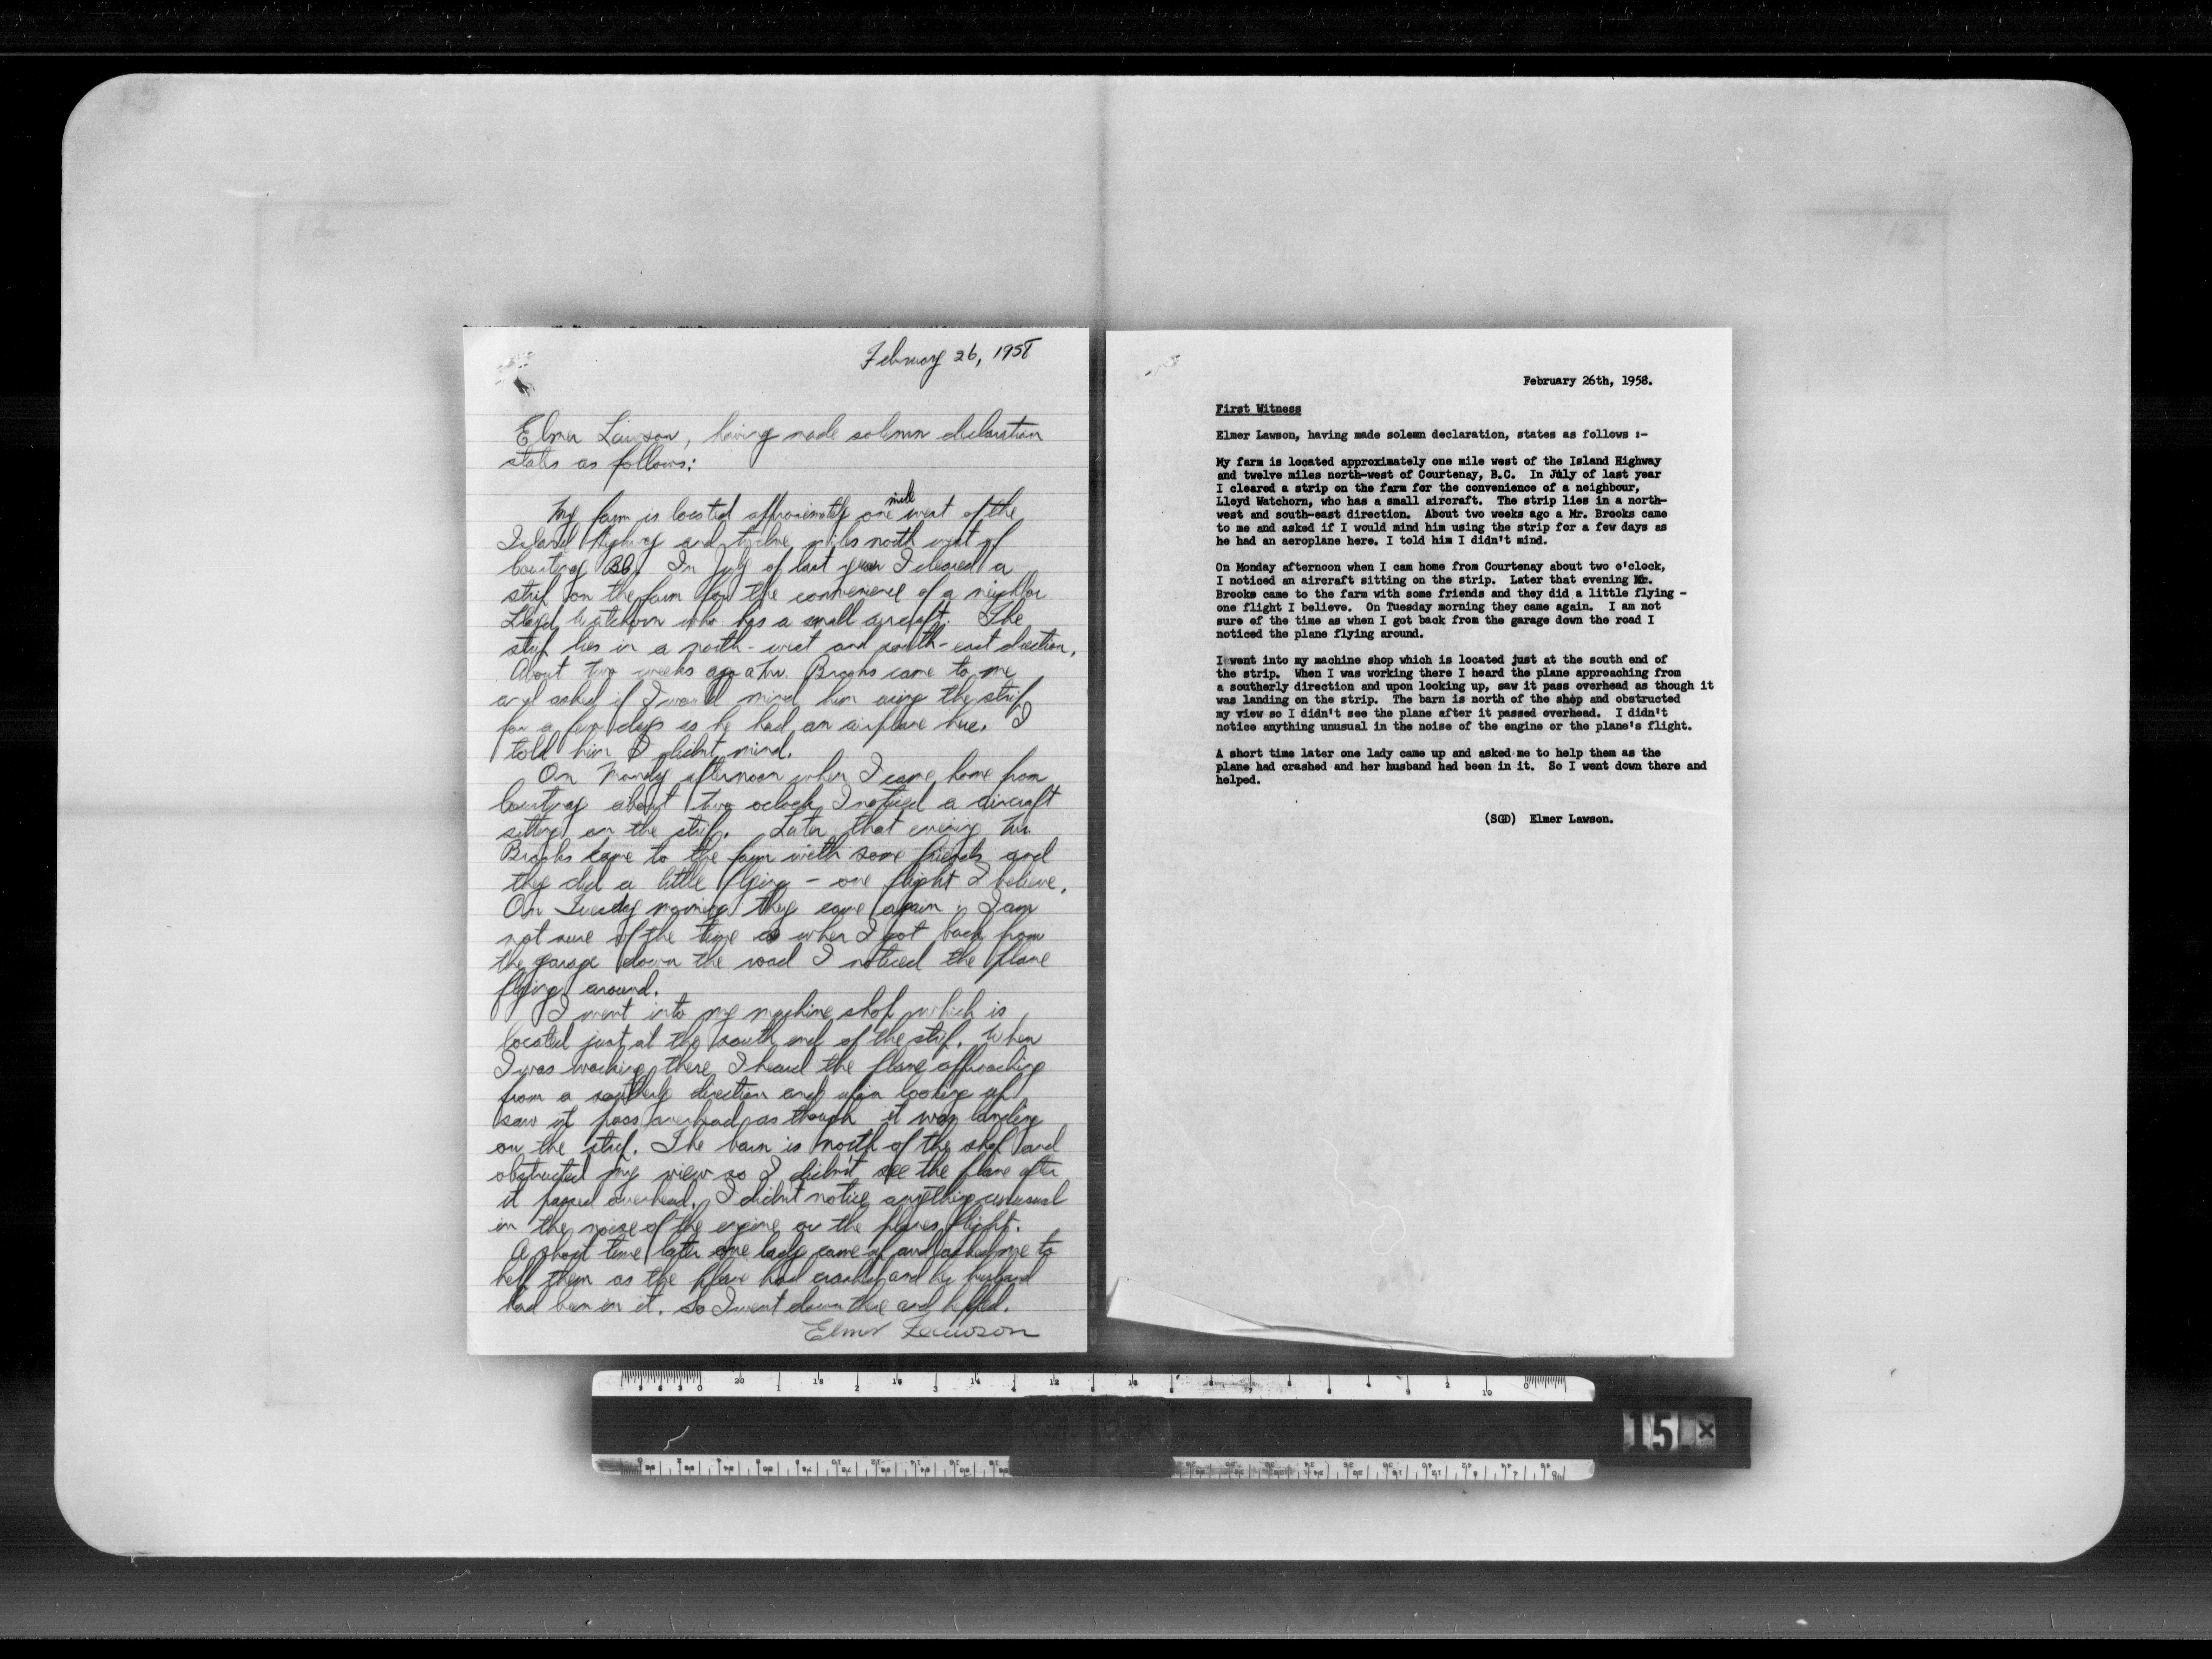 February 26, 1958
Elmer Lawson, having made solemn declaration
states as follows:
My farm is located approximately one mile west of the
Island Highway and twelve miles north west of
Courtenay BC. In July of last year I cleared a
strip on the farm for the convenience of a neighbor
Lloyd Watchorn who has a small aircraft. The
strip lies in a north-west and south-east direction.
About two weeks ago a Mr. Brooks came to me
and asked if I would mind him using the strip
for a few days as he had an airplane here. I
told him I didn't mind.
On Monday afternoon when I came home from
Courtenay about two oclock I noticed a aircraft
sitting on the strip. Later that evening Mr.
Brooks came to the farm with some friends and
they did a little flying - one flight I believe.
On Tuesday morning they came again. I am
not sure of the time as when I got back from
the garage down the road I noticed the plane
flying around.
I went into my machine shop which is
located just at the south end of the strip. When
I was working there I heard the plane approaching
from a southerly direction and upon looking up
saw it pass overhead as though it was landing
on the strip. The barn is north of the shop and
obstructed my view so I didn't see the plane after
it passed overhead. I didn't notice anything unusual
in the noise of the engine or the planes flight.
A short time later one lady came up and asked me to
help them as the plane had crashed and her husband
had been in it. So I went down there and helped.
Elmer Lawson
February 26th, 1958.
First Witness
Elmer Lawson, having made solemn declaration, states as follows :-
My farm is located approximately one mile west of the Island Highway
and twelve miles north-west of Courtenay, B.C. In July of last year
I cleared a strip on the farm for the convenience of a neighbour,
Lloyd Watchorn, who has a small aircraft. The strip lies in a north-
west and south-east direction. About two weeks ago a Mr. Brooks came
to me and asked if I would mind him using the strip for a few days as
he had an aeroplane here. I told him I didn't mind.
On Monday afternoon when I cam home from Courtenay about two o'clock,
I noticed an aircraft sitting on the strip. Later that evening Mr.
Brooks came to the farm with some friends and they did a little flying -
one flight I believe. On Tuesday morning they came again. I am not
sure of the time as when I got back from the garage down the road I
noticed the plane flying around.
I went into my machine shop which is located just at the south end of
the strip. When I was working there I heard the plane approaching from
a southerly direction and upon looking up, saw it pass overhead as though it
was landing on the strip. The barn is north of the shop and obstructed
my view so I didn't see the plane after it passed overhead. I didn't
notice anything unusual in the noise of the engine or the plane's flight.
A short time later one lady came up and asked me to help them as the
plane had crashed and her husband had been in it. So I went down there and
helped.
(SGD) Elmer Lawson.
15 X